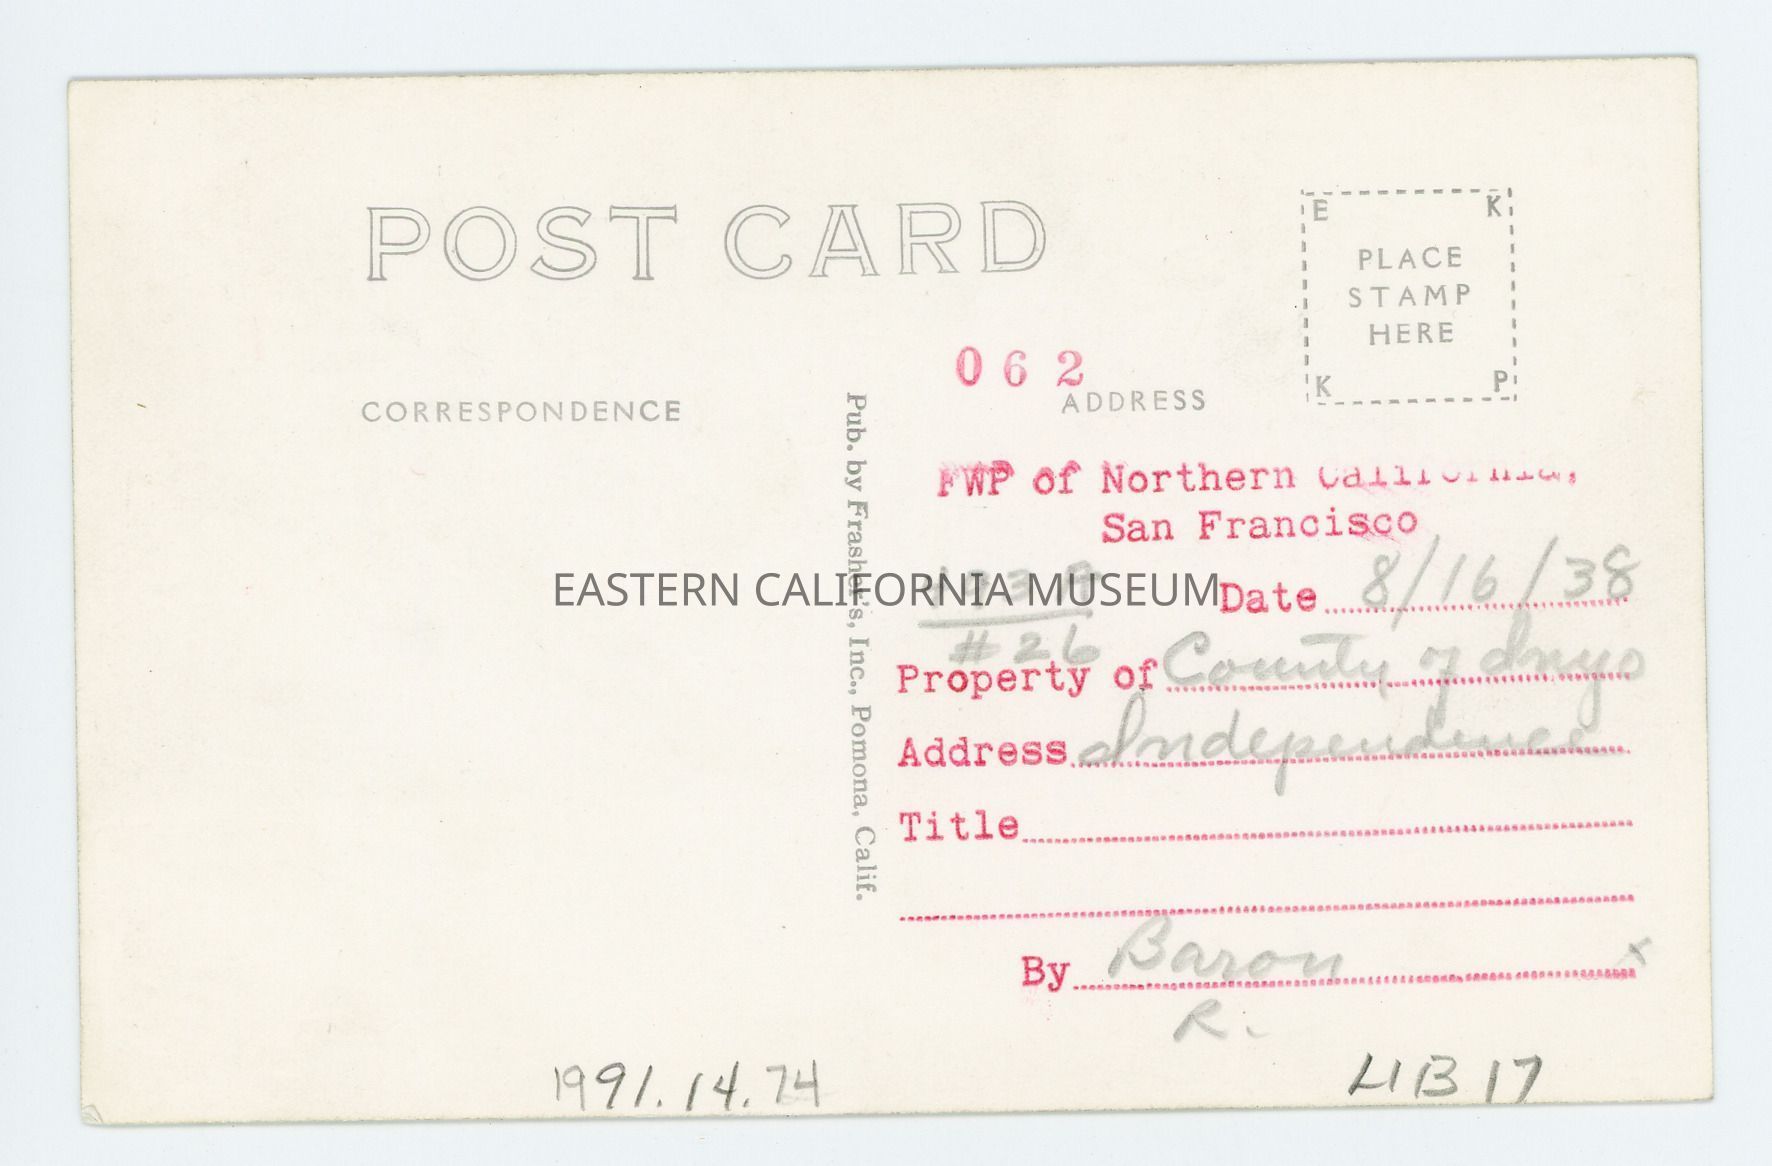 POST CARD
E K
PLACE
STAMP
HERE
K P
062
CORRESPONDENCE
ADDRESS
Pub. by Frasher's, Inc., Pomona, Calif.
FWP of Northern California,
San Francisco
EASTERN CALIFORNIA MUSEUM
Date 8/16/38
#26
Property of County of Inyo
Address Independence
Title
By Baron x
R.
1991.14.74